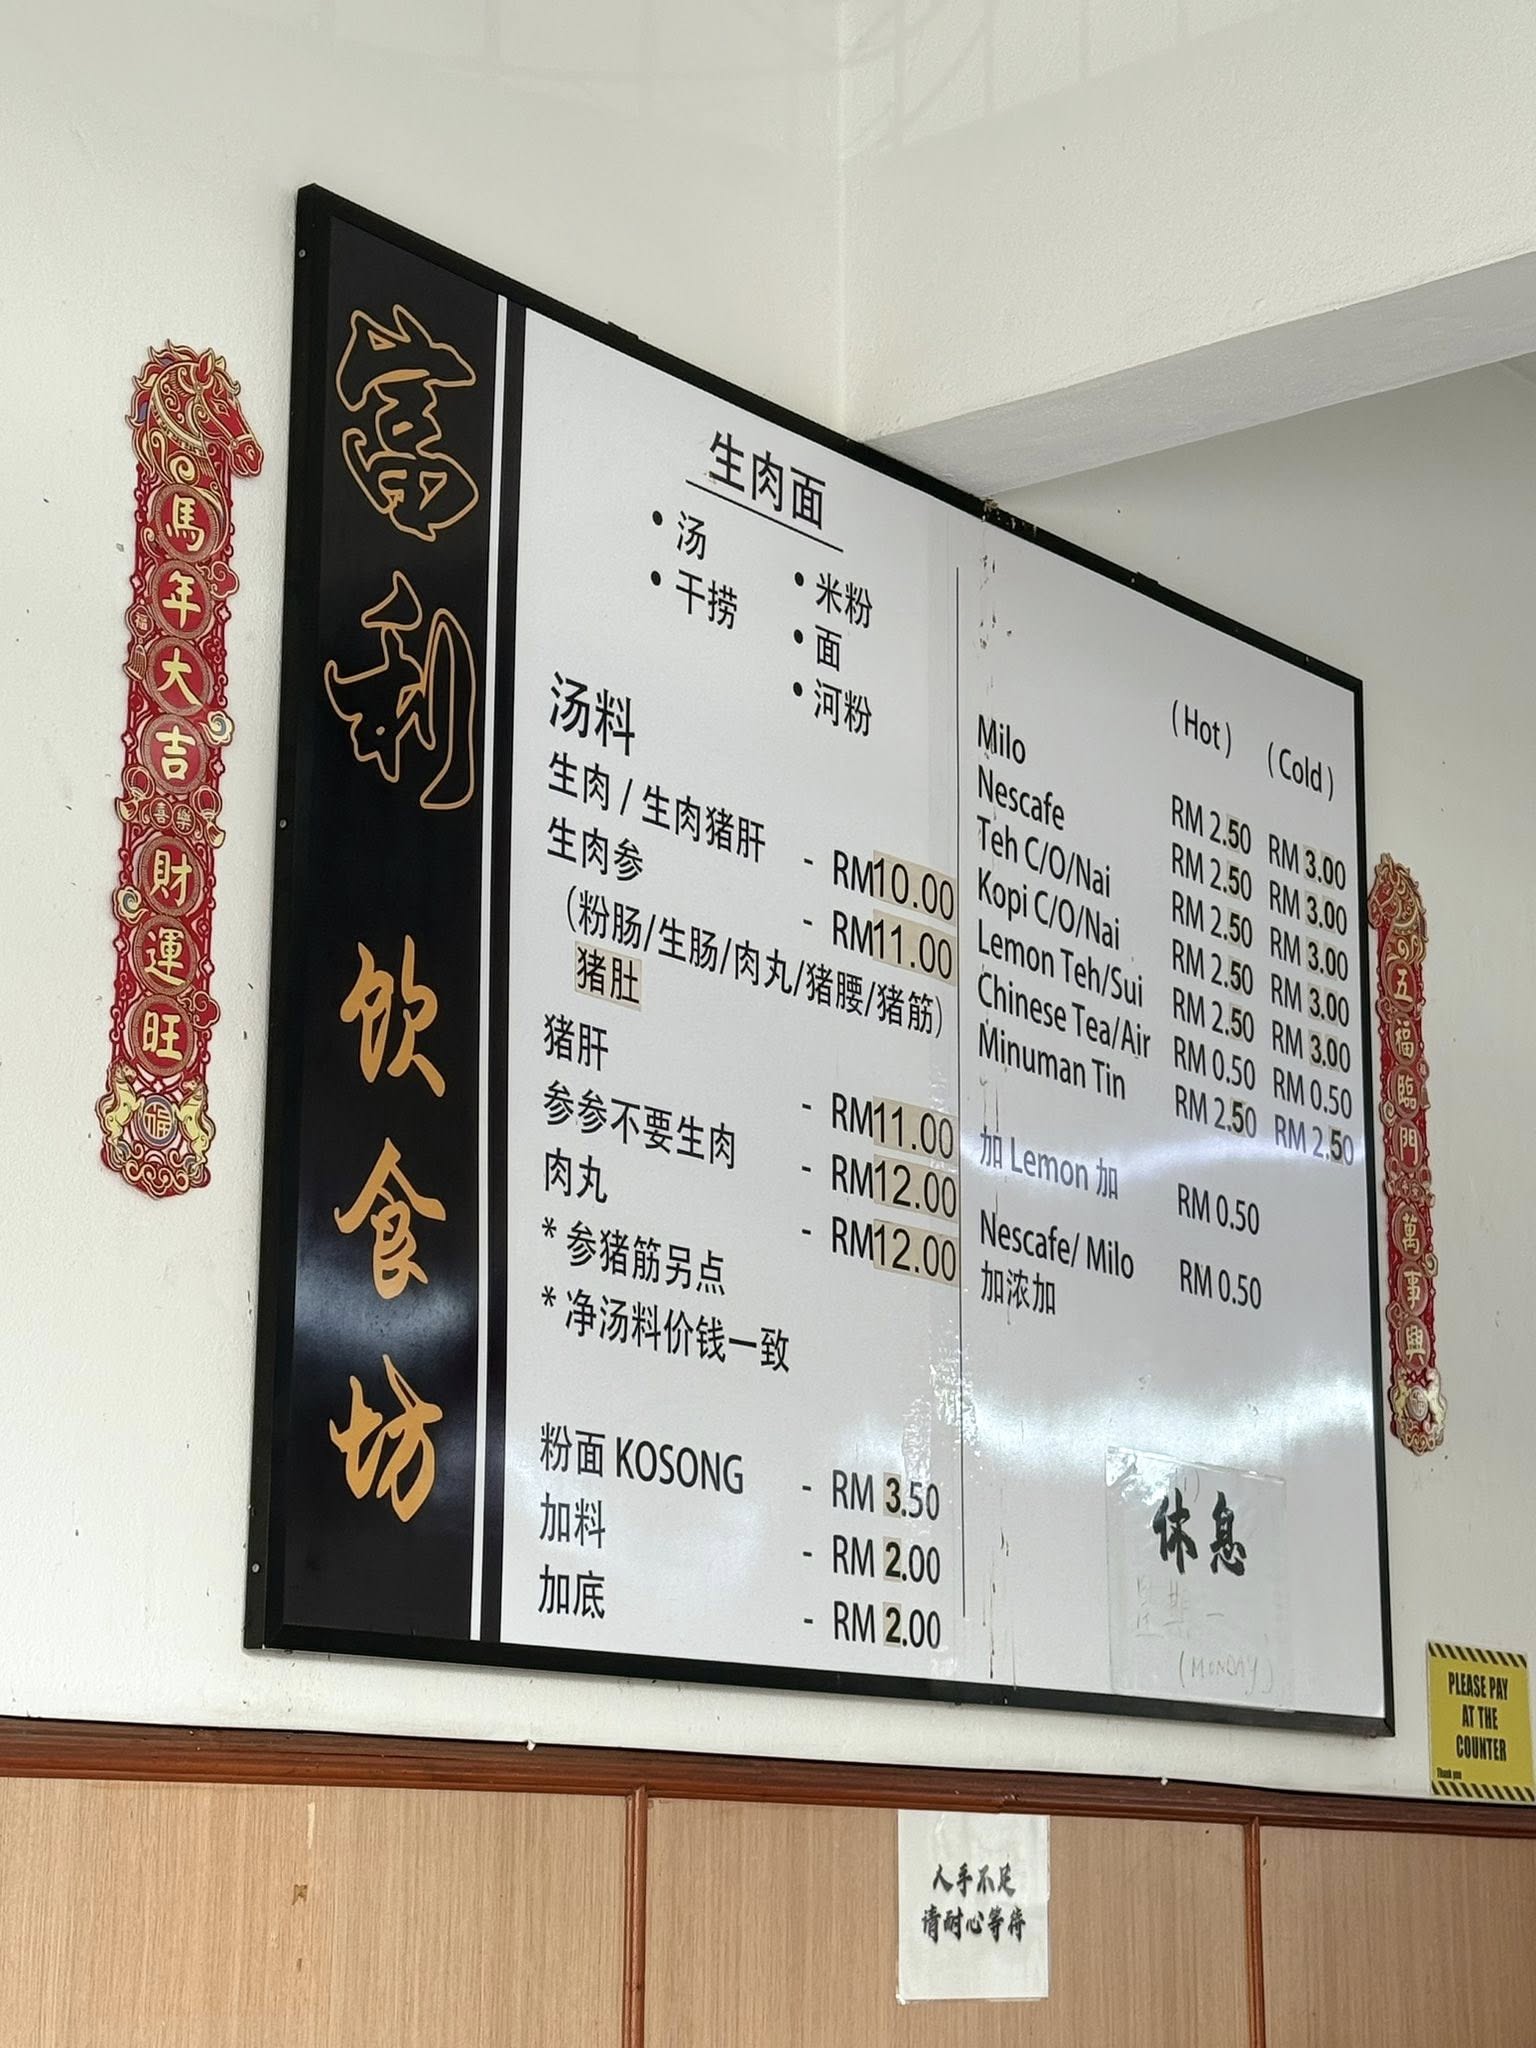 馬年大吉
喜樂
財運旺
福
富利 饮食坊
生肉面
• 汤
• 干捞
• 米粉
• 面
• 河粉
汤料
生肉 / 生肉猪肝 - RM10.00
生肉参 - RM11.00
(粉肠/生肠/肉丸/猪腰/猪筋)
猪肚
猪肝 - RM11.00
参参不要生肉 - RM12.00
肉丸 - RM12.00
* 参猪筋另点
* 净汤料价钱一致
粉面 KOSONG - RM 3.50
加料 - RM 2.00
加底 - RM 2.00
(Hot) (Cold)
Milo RM 2.50 RM 3.00
Nescafe RM 2.50 RM 3.00
Teh C/O/Nai RM 2.50 RM 3.00
Kopi C/O/Nai RM 2.50 RM 3.00
Lemon Teh/Sui RM 2.50 RM 3.00
Chinese Tea/Air RM 0.50 RM 0.50
Minuman Tin RM 2.50 RM 2.50
加 Lemon 加 RM 0.50
Nescafe/ Milo RM 0.50
加浓加
休息
(MONDAY)
五福臨門
萬事興
PLEASE PAY
AT THE
COUNTER
Thank you
人手不足
请耐心等待